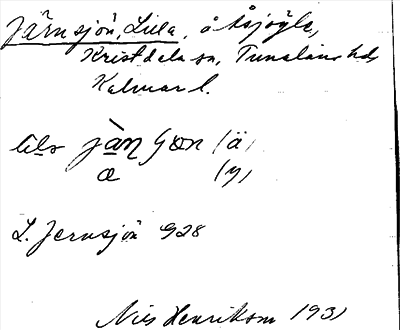 Järnsjön, Lilla, å Åsjögle,
Kristdala sn, Tunaläns hd,
Kalmar l.
lilla
(ä)
æ (y)
L. Jernsjön G28
Nils Henrikson 1931